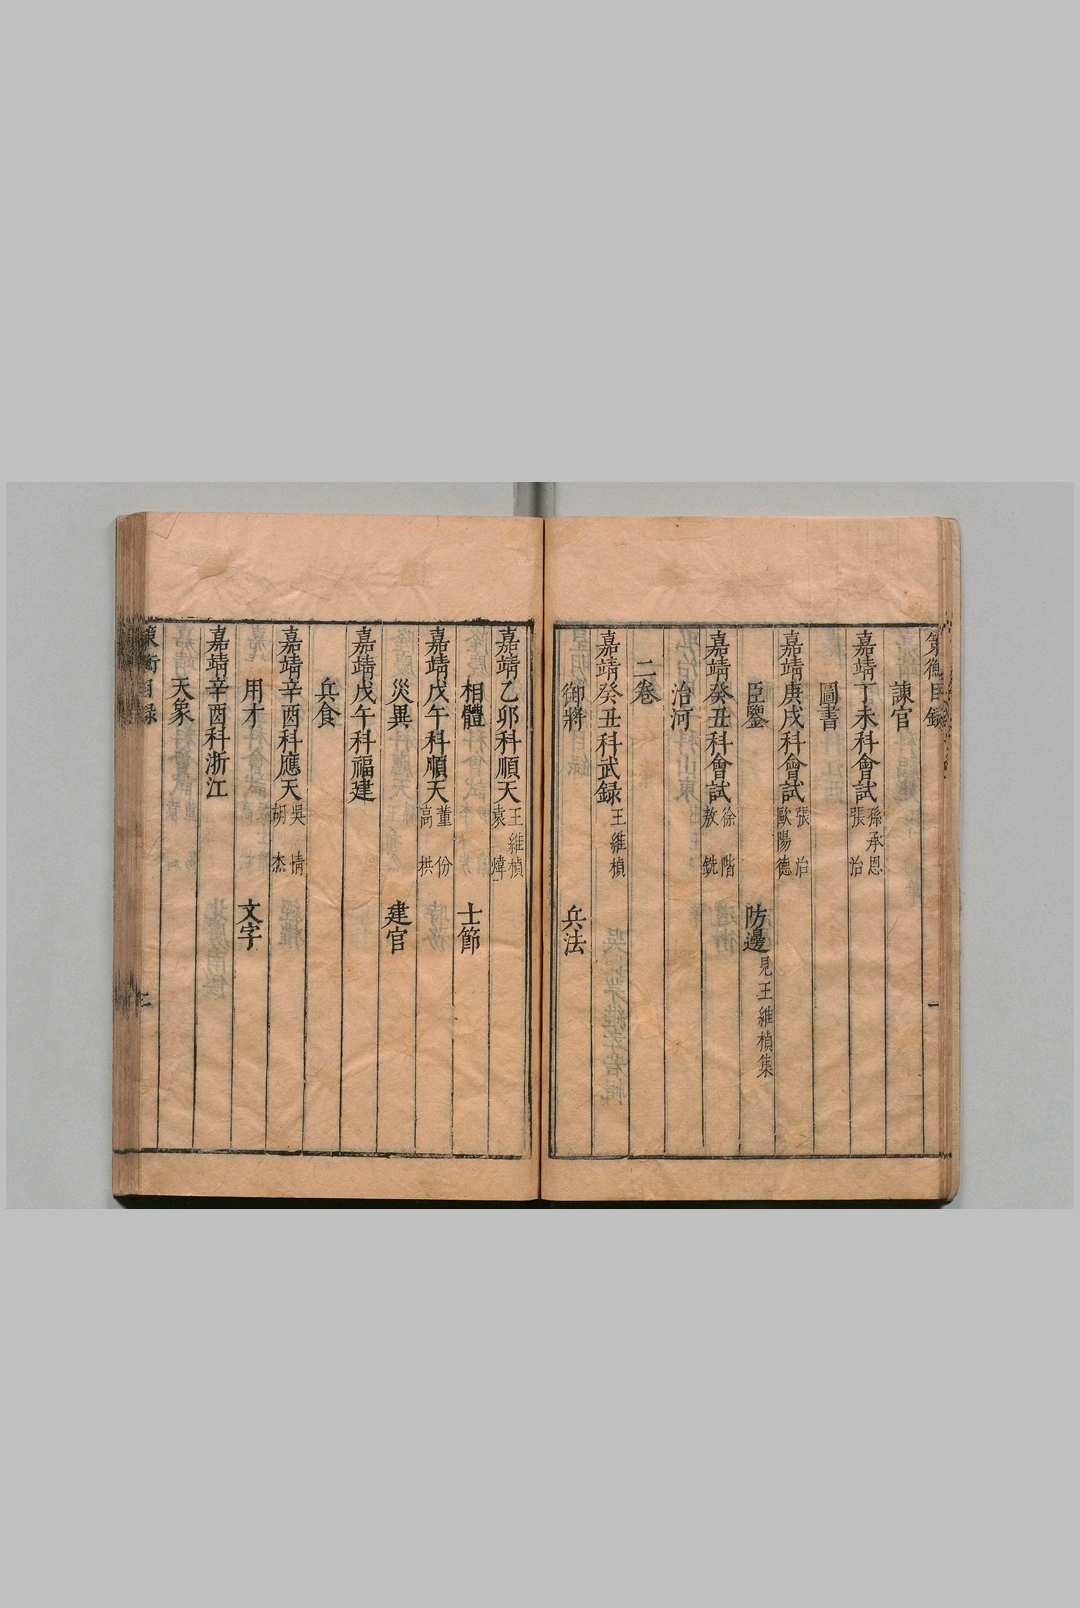 策衡目録
諫官
嘉靖丁未科會試 孫承恩 張治
圖書
嘉靖庚戌科會試 張治 歐陽德
臣鑒 防邊 見王維楨集
嘉靖癸丑科會試 徐階 敖銑
治河
二卷
嘉靖癸丑科武録 王維楨
御將 兵法
一
嘉靖乙卯科順天 王維楨 袁煒
相體 士節
嘉靖戊午科順天 董份 高拱
災異 建官
嘉靖戊午科福建
兵食
嘉靖辛酉科應天 吳情 胡杰
用才 文字
嘉靖辛酉科浙江
天象
策衡目録
二